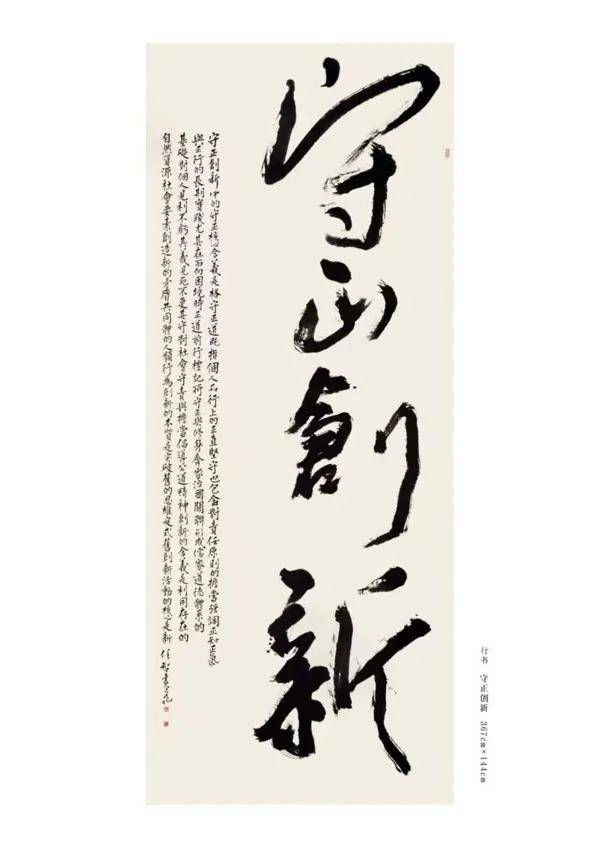 守正創新
守正創新中的守正核心含義是恪守正道既指個人品行上的正直堅守也包含對責任原則的擔當强調正知正氣
與正行的長期實踐尤其在面向困境時正道前行禮記將守正與修身齊家治國關聯形成儒家道德體系的
基礎對個人見利不虧其義見死不更其守對社會守責與擔當倡導公道精神創新的含義是利用存在的
自然資源社會要素創造新的矛盾共同體的人類行為創新的本質是突破舊的思維定式舊創新活動的核心是新
行书 守正创新 367cm×144cm